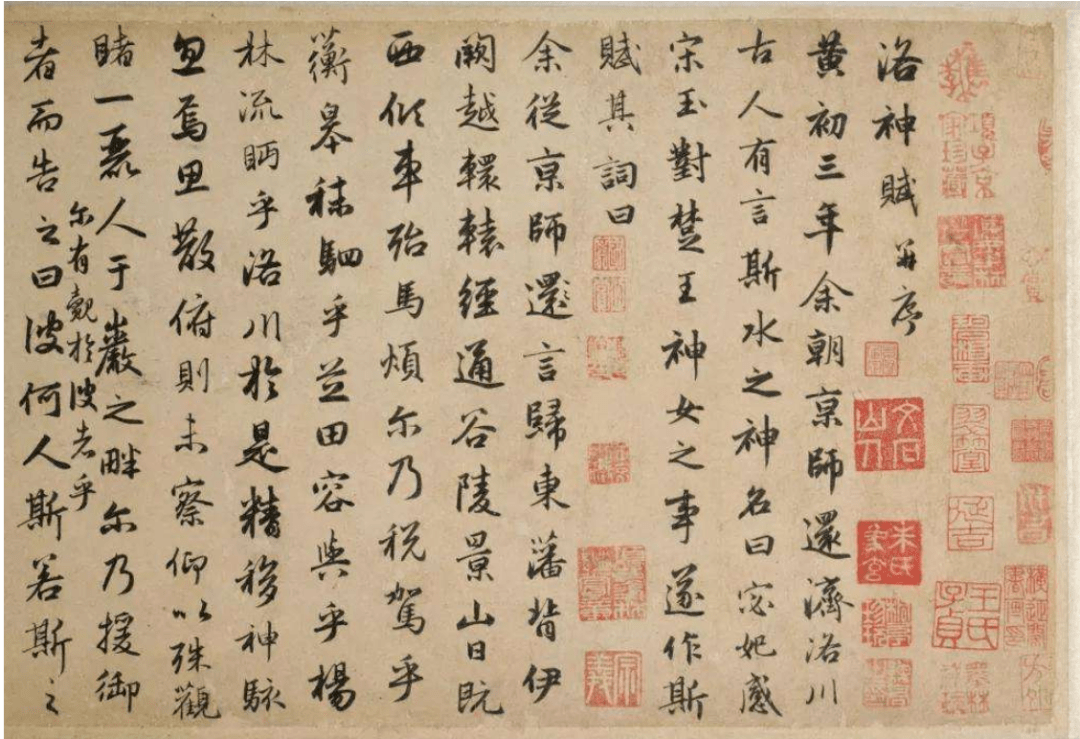 項子京家珍藏
文石山人
朱氏象玄
洛神賦并序
黄初三年余朝京師還濟洛川
古人有言斯水之神名曰宓妃感
宋玉對楚王神女之事遂作斯
賦其詞曰
余從京師還言歸東藩背伊
闕越轘轅經通谷陵景山日既
西傾車殆馬煩尔乃税駕乎
蘅皋秣駟乎芝田容與乎楊
林流眄乎洛川於是精移神駭
忽焉思散俯則未察仰以殊觀
睹一麗人于巖之畔尔乃援御
尔有覿於彼者乎
者而告之曰彼何人斯若斯之